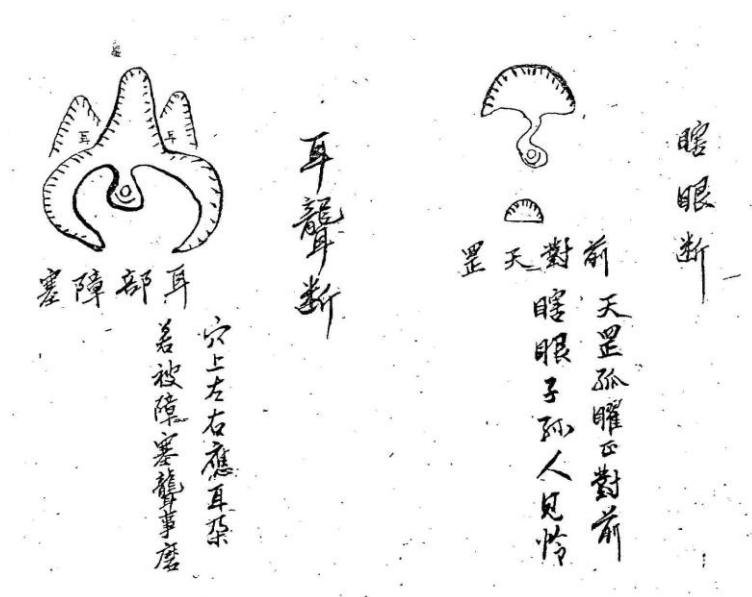 瞎眼断
前對天罡
天罡孤曜正對前
瞎眼子孫人見怜
耳聾断
耳
耳
耳部障塞
穴上左右應耳朶
若被障塞聾事磨